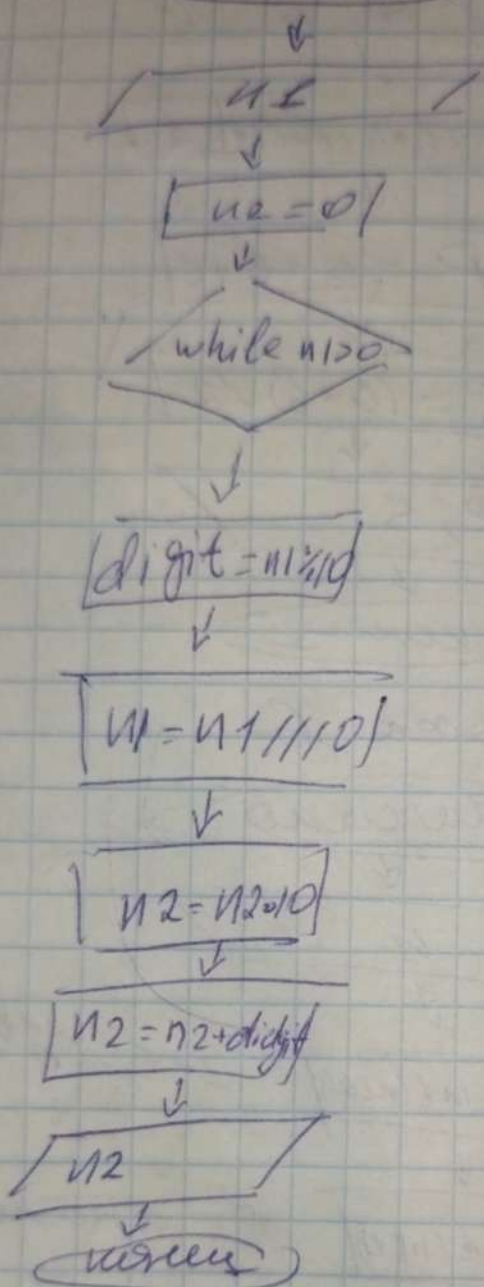 n1
n2 = 0
while n1>0
digit = n1%10
n1 = n1//10
n2 = n2*10
n2 = n2+digit
n2
конец